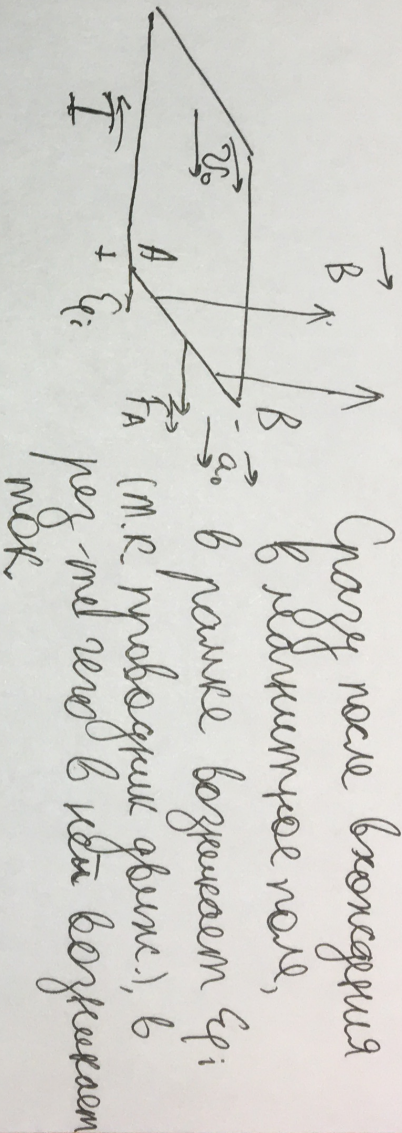 B⃗
v⃗₀
I
A
+
ℰᵢ
F⃗_A
-
B
a⃗₀
Сразу после вхождения
в магнитное поле,
в рамке возникает ℰᵢ
(т.к. проводник движ.), в
рез-те чего в ней возникает
ток.